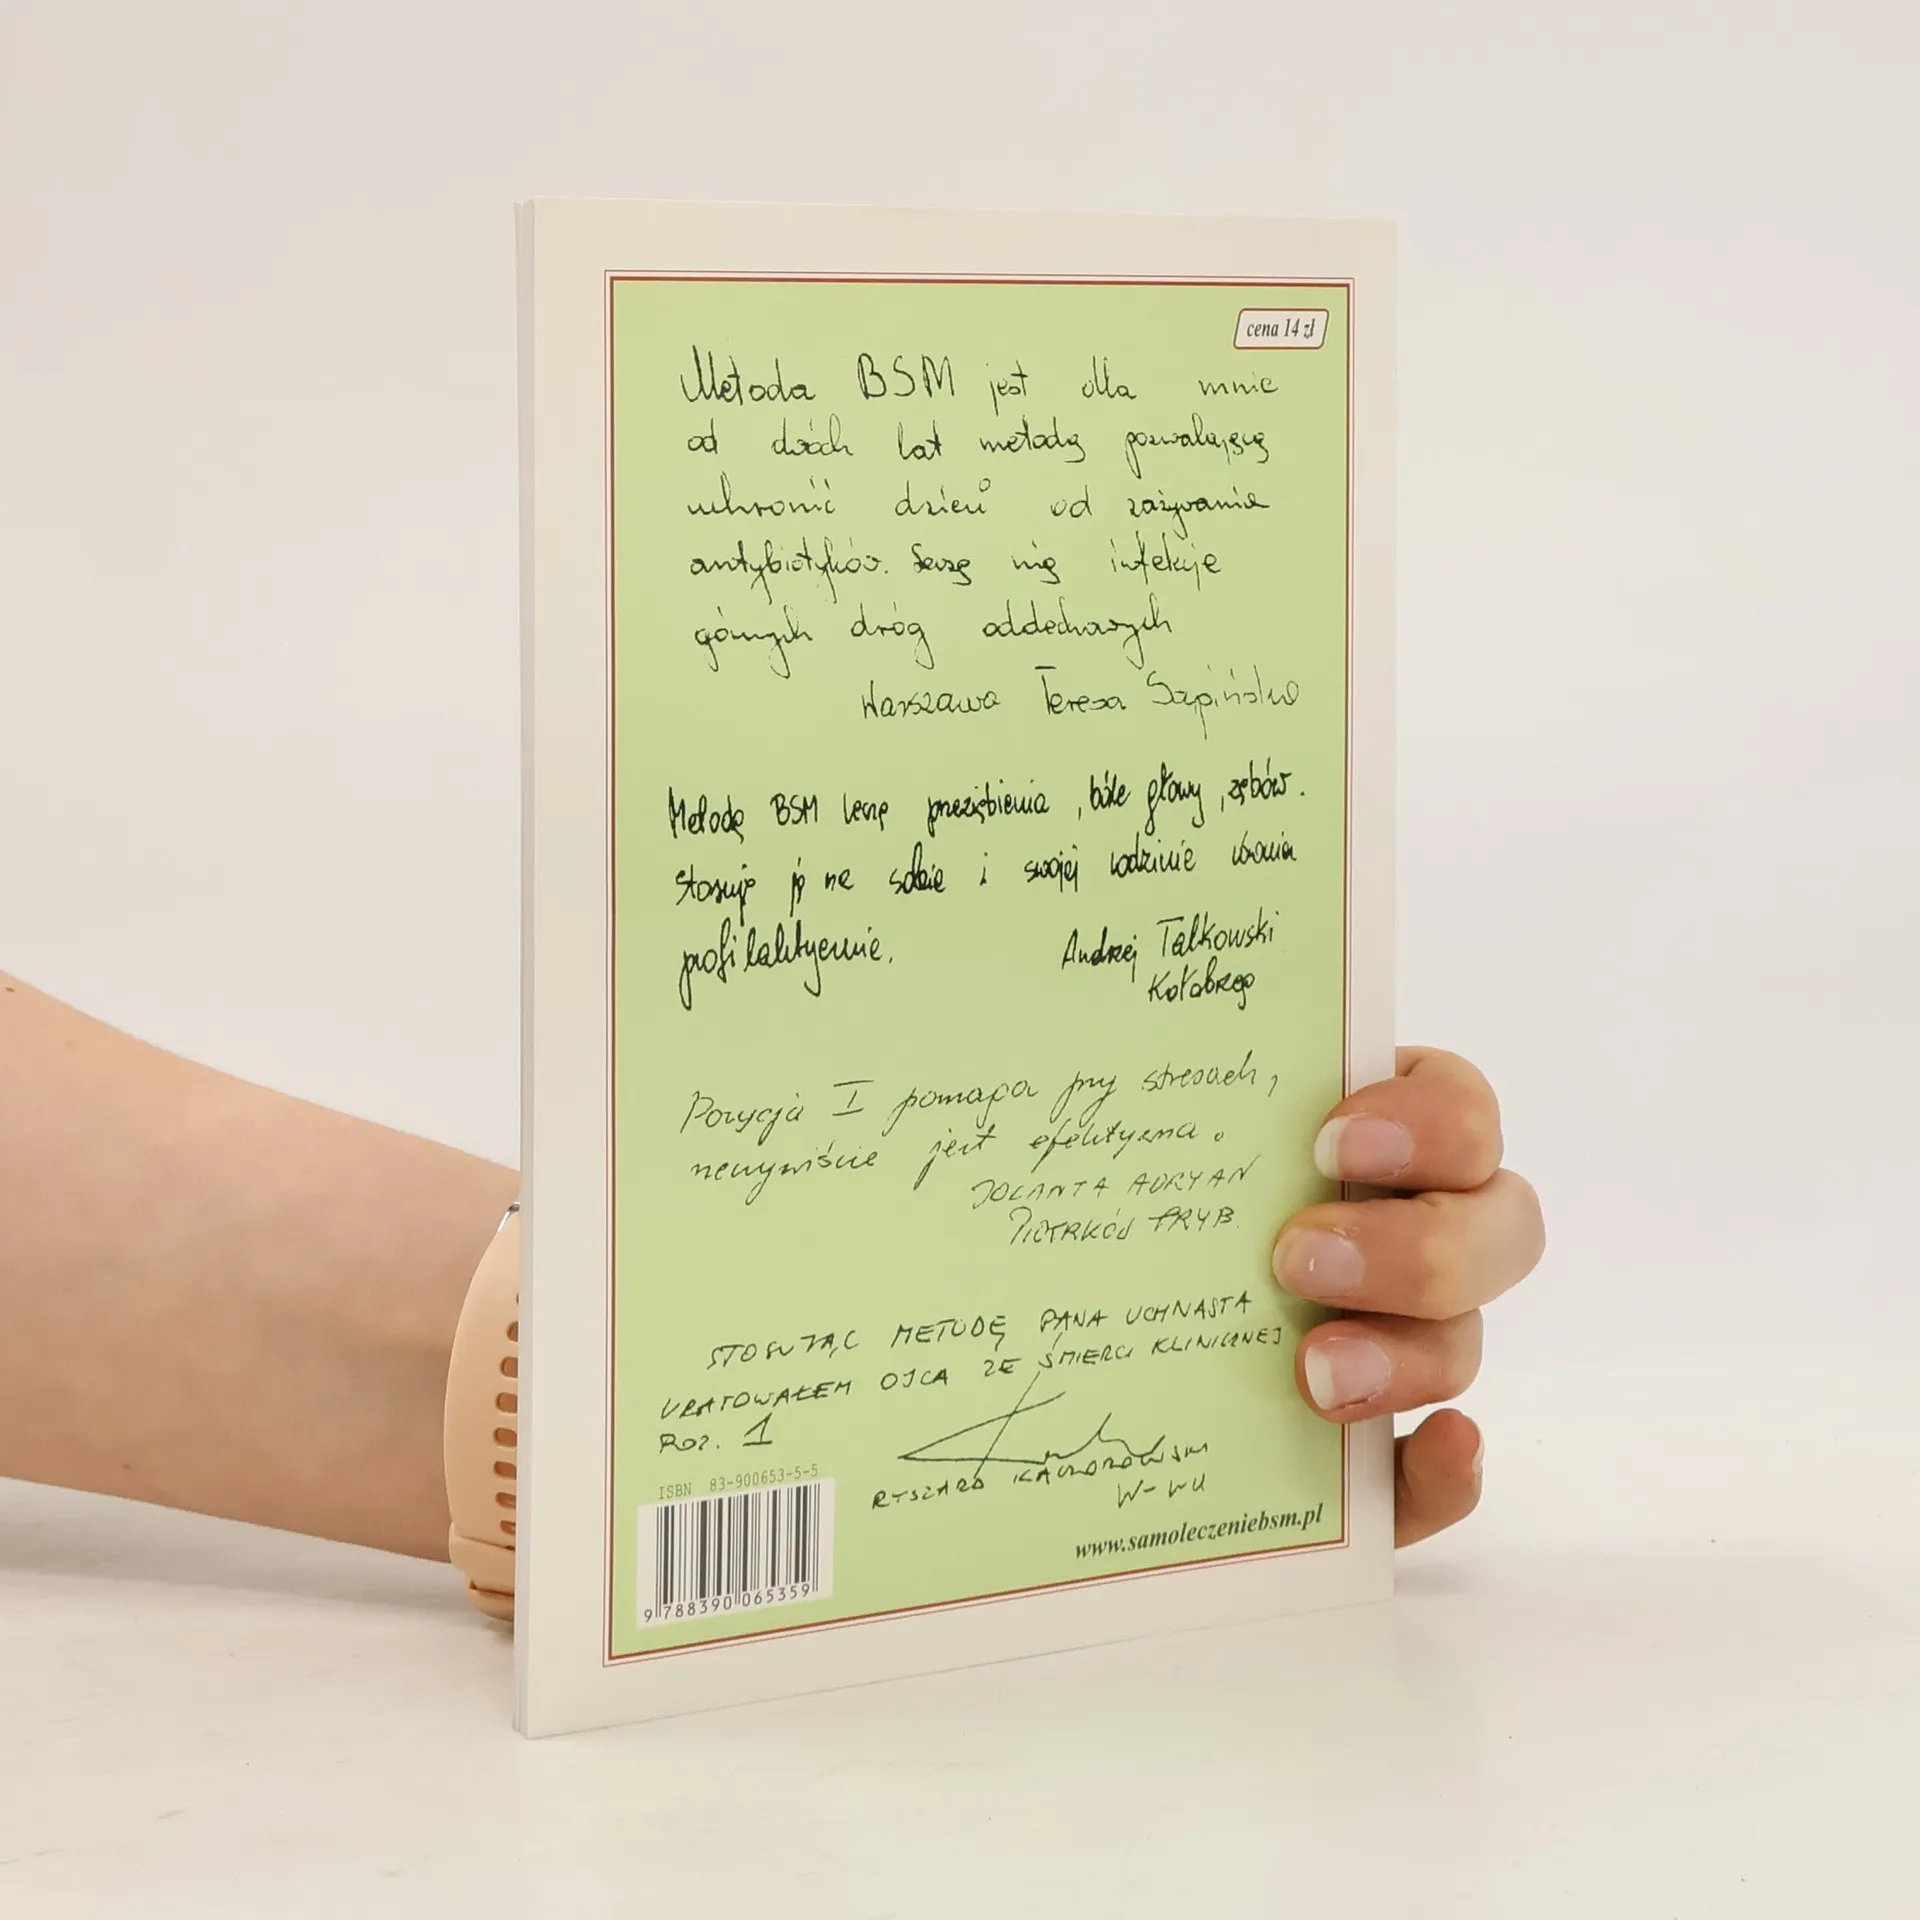 cena 14 zł
Metoda BSM jest dla mnie
od dwóch lat metodą pozwalającą
uchronić dzieci od zażywania
antybiotyków. Leczę nią infekcje
górnych dróg oddechowych
Warszawa Teresa
Metodą BSM leczę przeziębienia, bóle głowy, zębów.
Stosuję ją na sobie i swojej rodzinie
profilaktycznie.
Andrzej Talkowski
Kołobrzeg
Pozycja I pomaga przy stresach,
rzeczywiście jest efektywna.
JOLANTA ADRYAN
PIOTRKÓW TRYB.
STOSUJĄC METODĘ PANA UCHNASTA
URATOWAŁEM OJCA ZE ŚMIERCI KLINICZNEJ
POZ. 1
RYSZARD KACZOROWSKI
W-WA
ISBN 83-900653-5-5
9 788390 065359
www.samoleczeniebsm.pl